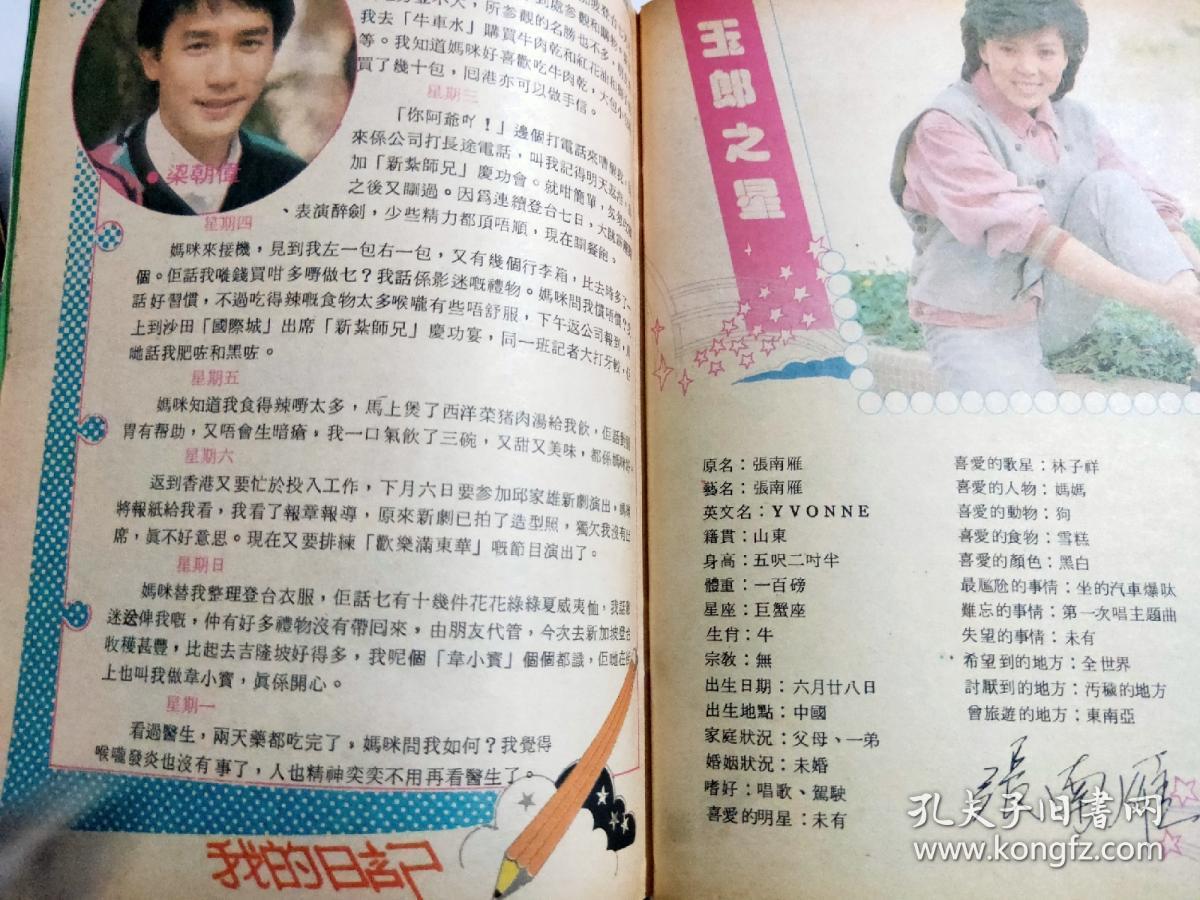 加坡登台七
所參觀的名勝也不多，
我去「牛車水」購買牛肉乾和紅花油和
等。我知道媽咪好喜歡吃牛肉乾，大包小
買了幾十包，囘港亦可以做手信。
星期三
「你阿爺吖！」邊個打電話來嘈
來係公司打長途電話，叫我記得明天返港，
加「新紮師兄」慶功會。就咁簡單，
之後又瞓過。因爲連續登台七日，大
、表演醉劍，少些精力都頂唔順，現在瞓餐飽。
• 梁朝偉
星期四
媽咪來接機，見到我左一包右一包，又有幾個行李箱，比去時多了一
個。佢話我嘥錢買咁多嘢做乜？我話係影迷嘅禮物。媽咪問我慣唔慣？我
話好習慣，不過吃得辣嘅食物太多喉嚨有些唔舒服，下午返公司報到，
上到沙田「國際城」出席「新紮師兄」慶功宴，同一班記者大打牙骹，佢
哋話我肥咗和黑咗。
星期五
媽咪知道我食得辣嘢太多，馬上煲了西洋菜猪肉湯給我飮，佢話
胃有帮助，又唔會生暗瘡，我一口氣飮了三碗，又甜又美味，都係媽咪
星期六
返到香港又要忙於投入工作，下月六日要參加邱家雄新劇演出，媽咪
將報紙給我看，我看了報章報導，原來新劇已拍了造型照，獨欠我沒有出
席，眞不好意思。現在又要排練「歡樂滿東華」嘅節目演出了。
星期日
媽咪替我整理登台衣服，佢話乜有十幾件花花綠綠夏威夷恤，我話
迷送俾我嘅，仲有好多禮物沒有帶囘來，由朋友代管，今次去新加坡登台
收穫甚豐，比起去吉隆坡好得多，我呢個「韋小寳」個個都識，佢哋在街
上也叫我做韋小寳，眞係開心。
星期一
看過醫生，兩天藥都吃完了，媽咪問我如何？我覺得
喉嚨發炎也沒有事了，人也精神奕奕不用再看醫生了。
我的日記
玉郎之星
原名：張南雁
藝名：張南雁
英文名：YVONNE
籍貫：山東
身高：五呎二吋半
體重：一百磅
星座：巨蟹座
生肖：牛
宗教：無
出生日期：六月廿八日
出生地點：中國
家庭狀況：父母、一弟
婚姻狀況：未婚
嗜好：唱歌、駕駛
喜愛的明星：未有
喜愛的歌星：林子祥
喜愛的人物：媽媽
喜愛的動物：狗
喜愛的食物：雪糕
喜愛的顏色：黑白
最尷尬的事情：坐的汽車爆呔
難忘的事情：第一次唱主題曲
失望的事情：未有
希望到的地方：全世界
討厭到的地方：汚穢的地方
曾旅遊的地方：東南亞
張南雁
孔夫子旧书网
www.kongfz.com